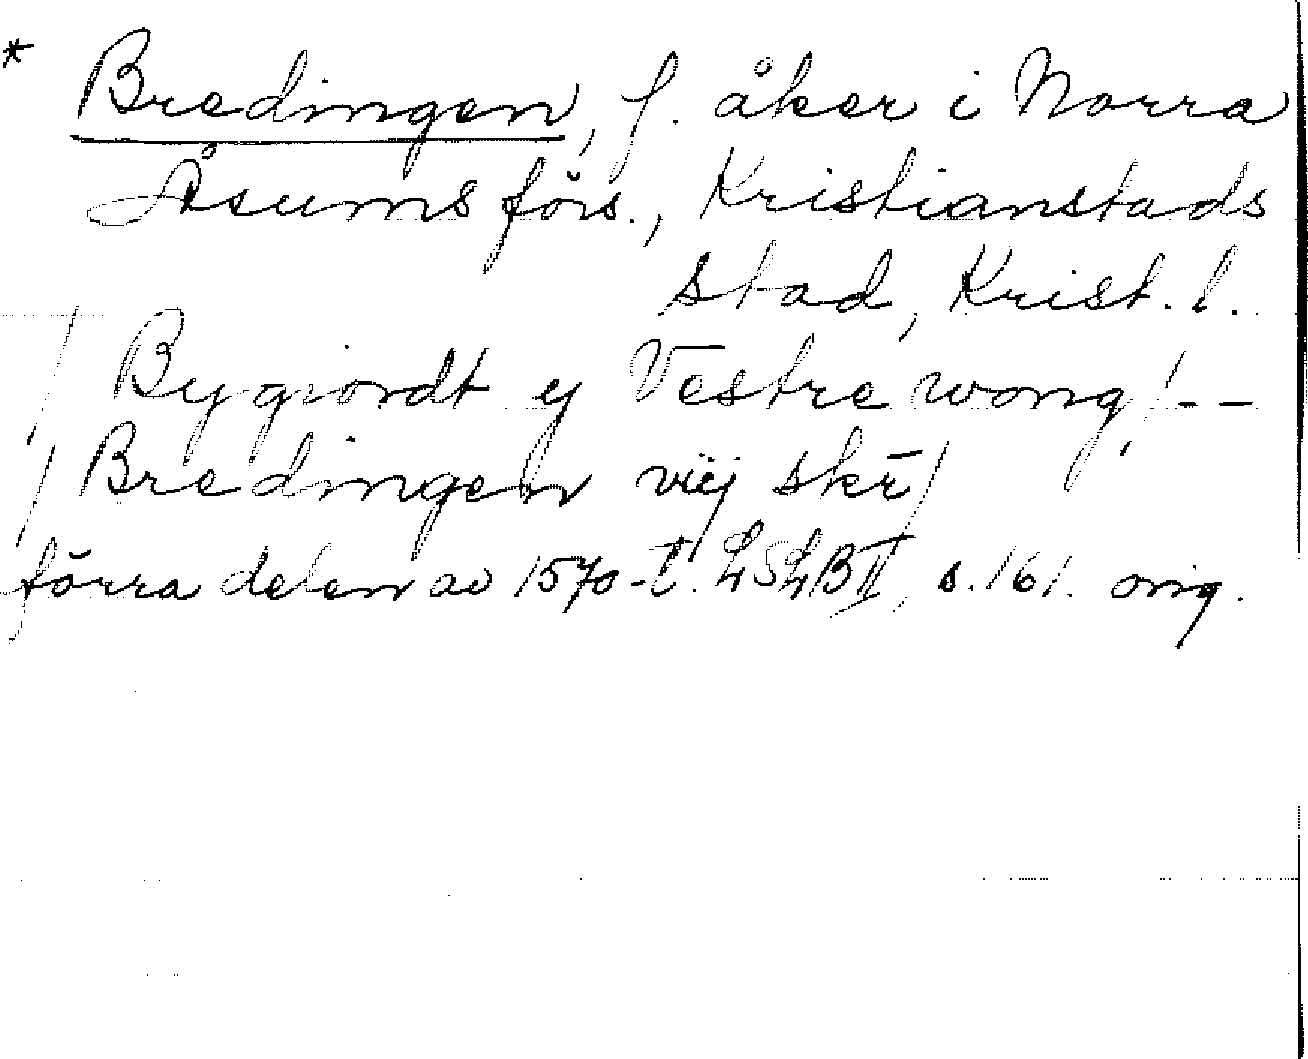 * Bredingen, f. åker i Norra
Åsums förs., Kristianstads
stad, Krist. l.
/ Bygiordt y Vestre wong! --
/ Bredingen viij skr /
förra delen av 1570-t. LSLB II, s. 161. orig.